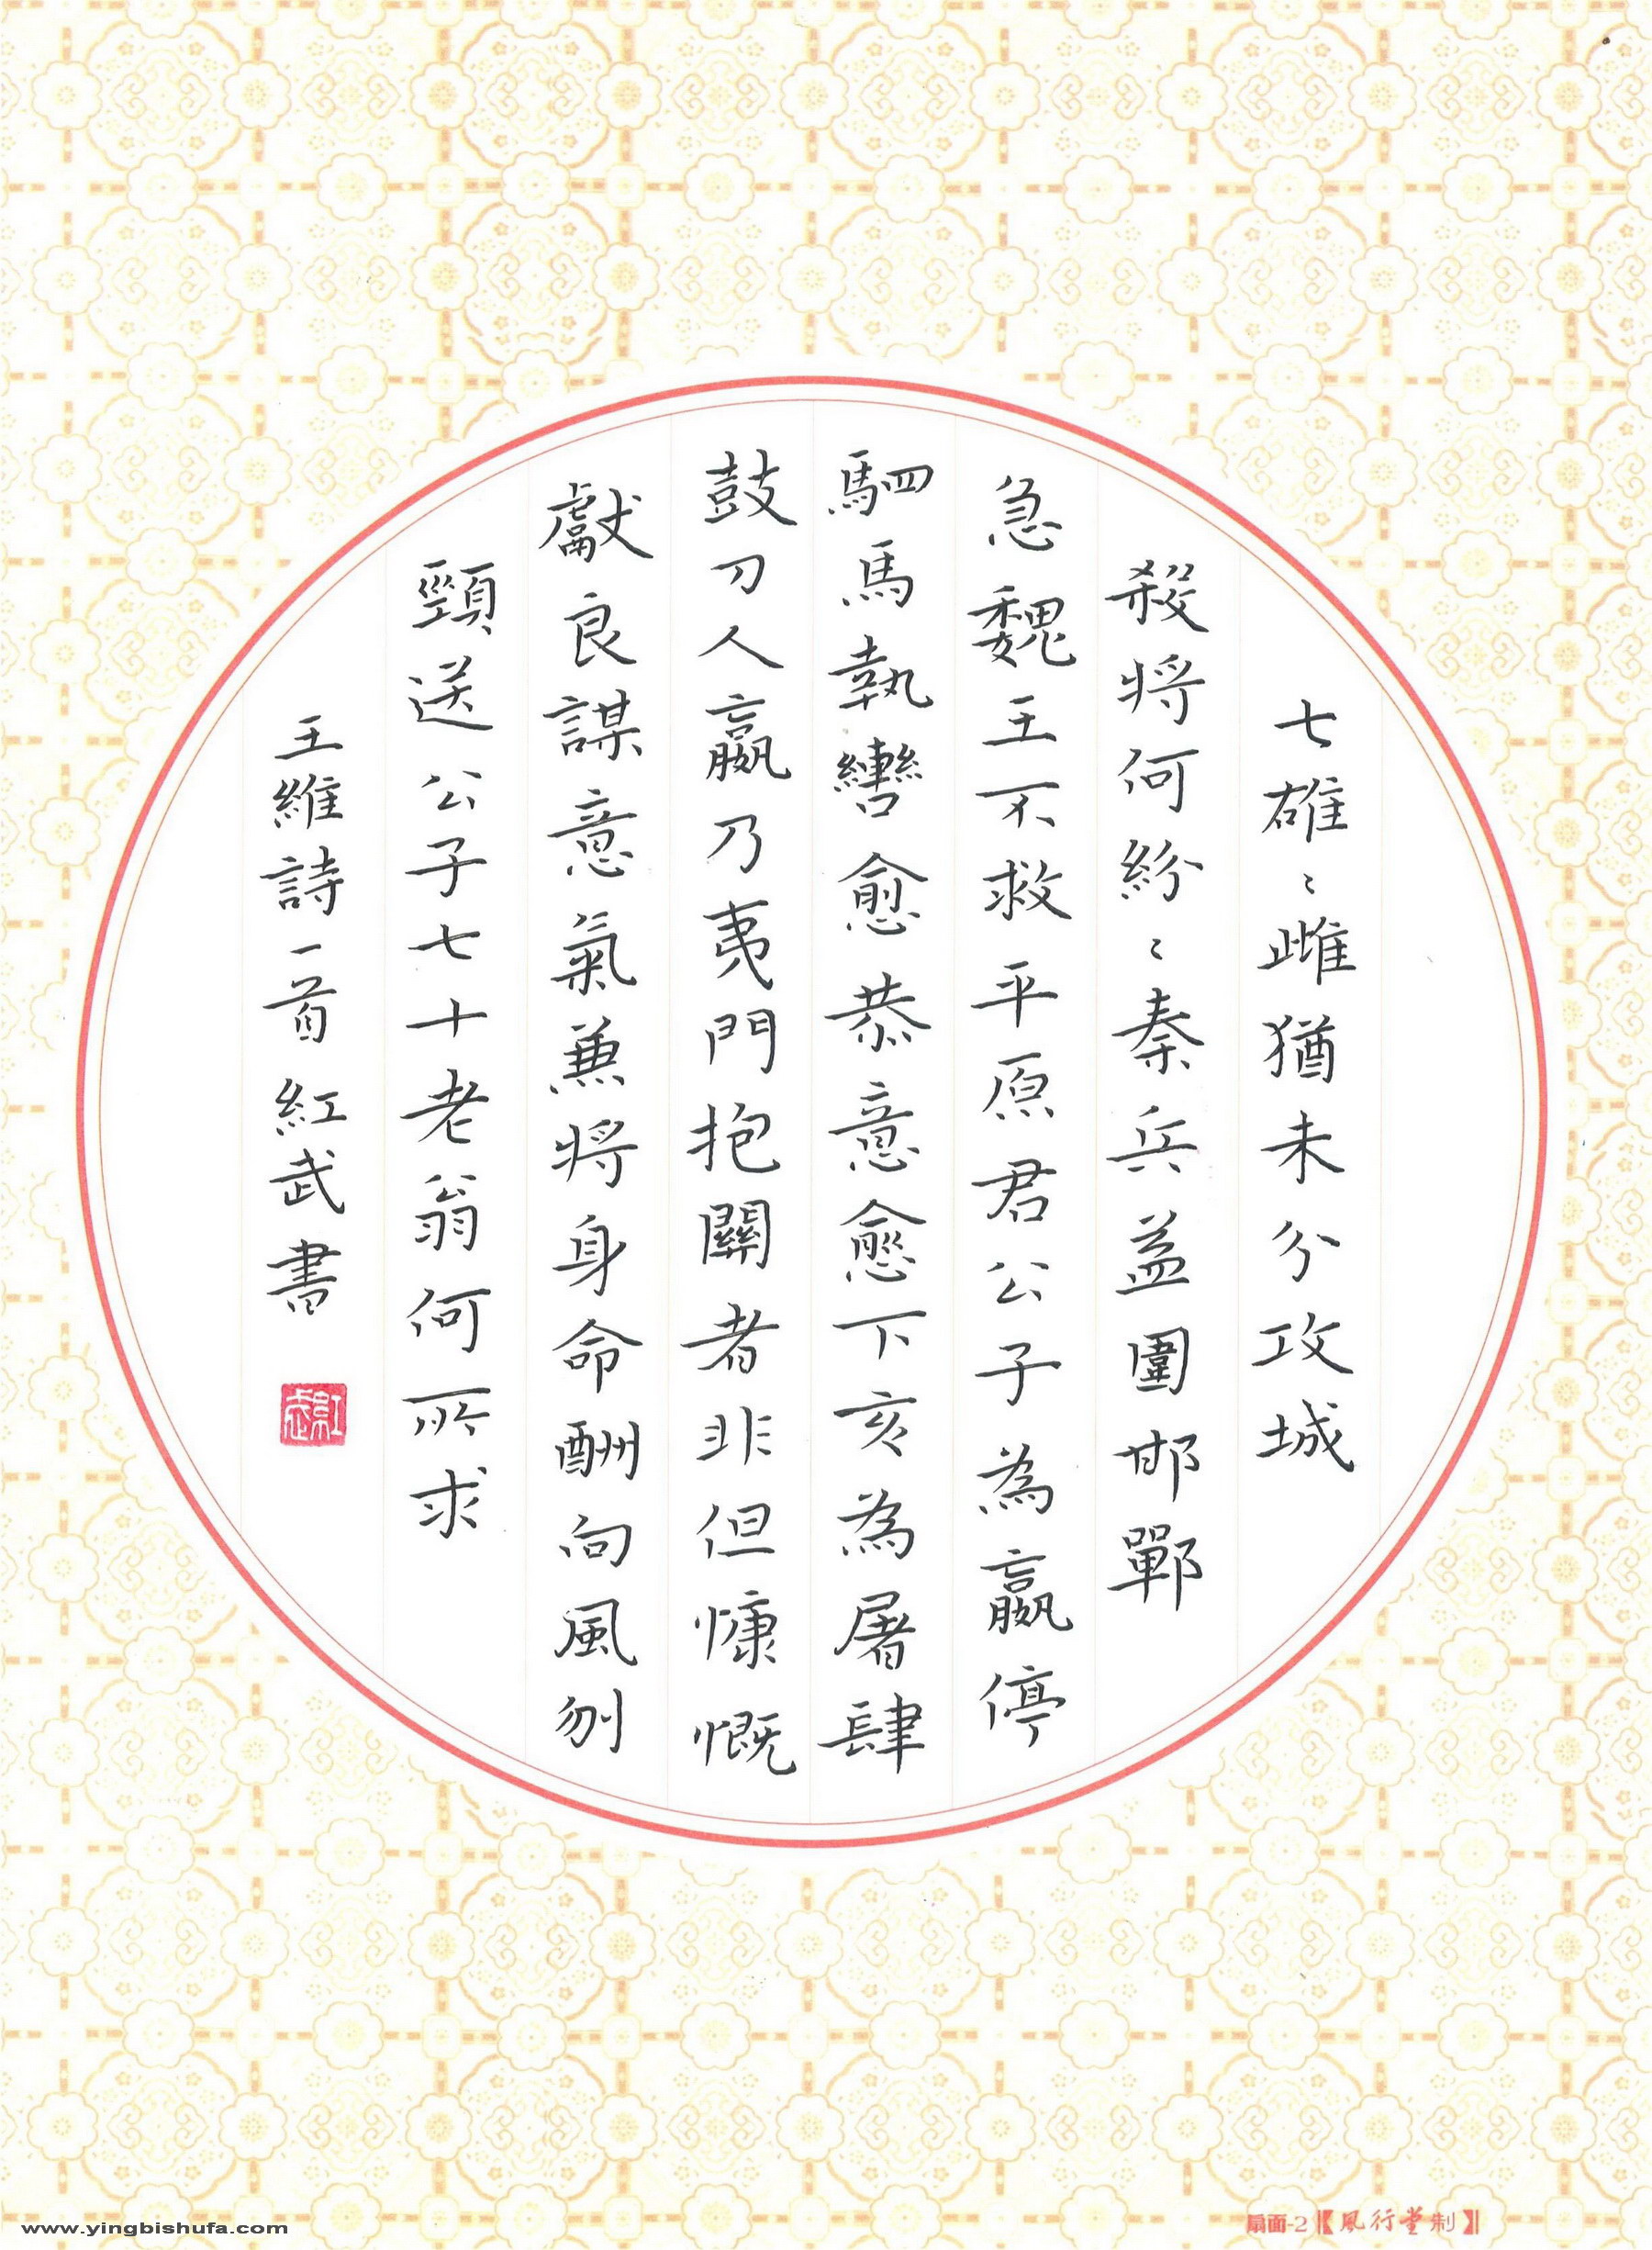 七雄〻雌猶未分攻城
殺将何紛〻秦兵益圍邯鄲
急魏王不救平原君公子為嬴停
駟馬執轡愈恭意愈下亥為屠肆
鼓刀人嬴乃夷門抱關者非但慷慨
獻良謀意氣兼将身命酬向風刎
頸送公子七十老翁何所求
王維詩一首紅武書
紅武
www.yingbishufa.com
扇面-2【風行堂制】